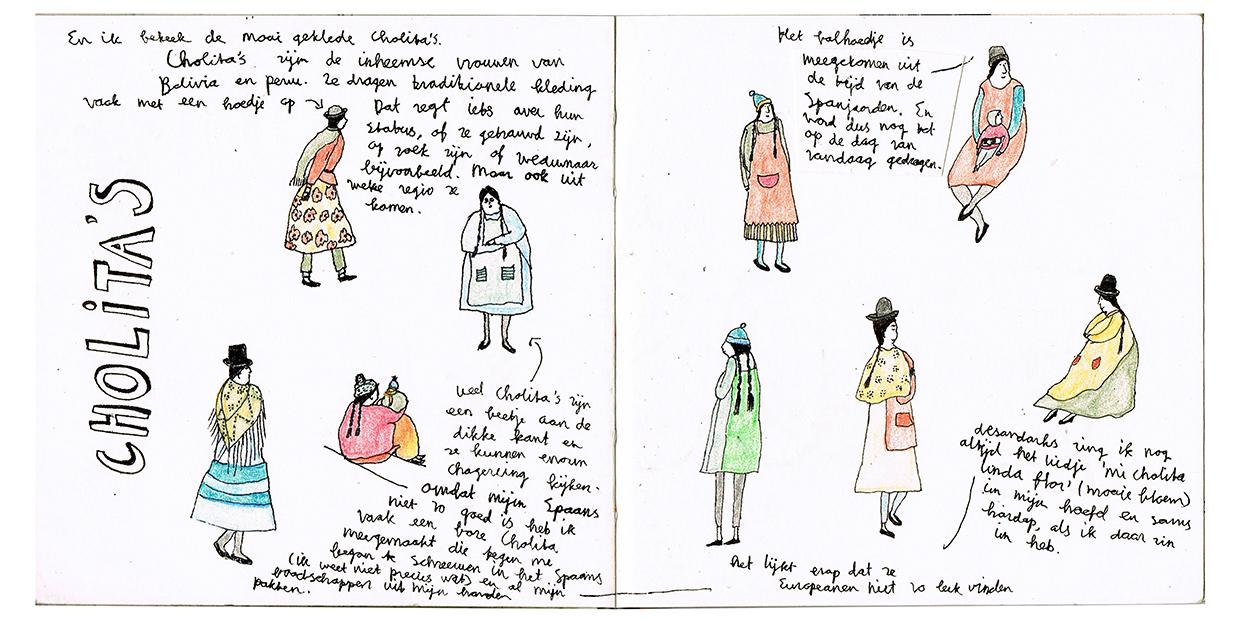 CHOLiTA'S
En ik bekeek de mooi geklede Cholita's.
Cholita's zijn de inheemse vrouwen van
Bolivia en peru. Ze dragen traditionele kleding
vaak met een hoedje op →
Dat zegt iets over hun
status, of ze getrouwd zijn,
op zoek zijn of weduwnaar
bijvoorbeeld. Maar ook uit
welke regio ze
komen.
veel Cholita's zijn
een beetje aan de
dikke kant en
ze kunnen enorm
chagereing kijken.
omdat mijn Spaans
niet zo goed is heb ik
vaak een boze Cholita
meegemaakt die tegen me
began te schreeuwen in het Spaans
(ik weet niet precies wat) en al mijn
boodschappen uit mijn handen
pakten.
Het lijkt erop dat ze
Europeanen niet zo leuk vinden
Het bolhoedje is
meegekomen uit
de tijd van de
Spanjaarden. En
word dus nog tot
op de dag van
vandaag gedragen.
desandanks zing ik nog
altijd het liedje 'mi cholita
linda flor' (mooie bloem)
in mijn hoofd en soms
hardop, als ik daar zin
in heb.